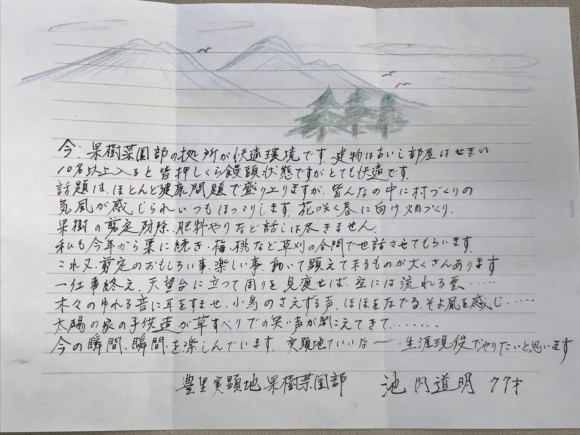 今、果樹菜園部の拠所が快適環境です。建物は古いし部屋はせまい
10名以上入ると皆押しくら饅頭状態ですがとても快適です。
話題は、ほとんど健康問題で盛り上りますが、皆んなの中に村づくりの
気風が感じられいつもほっこりします。花咲く春に向け畑づくり、
果樹の剪定、防除、肥料やりなど話しは尽きません。
私も今年から栗に続き、梅、桃など草刈の合間で世話させてもらいます。
これ又、剪定のおもしろい事、楽しい事、動いて顕えて来るものが大くさんあります
一仕事終え、天望台に立って周りを見渡せば、空には流れる雲……
木々のゆれる音に耳をすませ、小鳥のさえずる声、ほほをなでる、そよ風を感じ……
太陽の家の子供達が草すべりでの笑い声が聞こえてきて………
今の瞬間、瞬間を楽しんでいます。実顕地ていいなー、生涯現役でやりたいと思います
豊里実顕地果樹菜園部 池門道明 77才